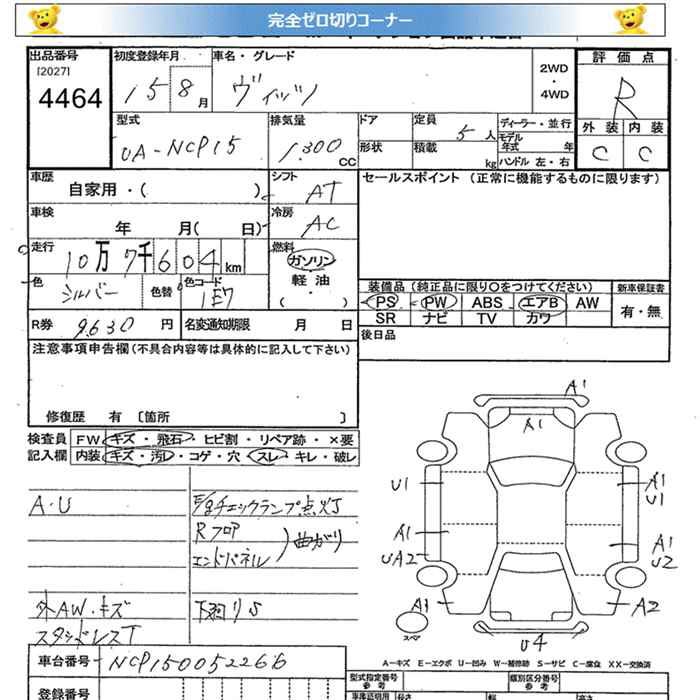 完全ゼロ切りコーナー
出品番号 初度登録年月 車名・グレード 2WD・4WD 評価点
[2027]
4464 15 8月 ヴィッツ R
型式 排気量 ドア 定員 ディーラー・並行 外装 内装
UA-NCP15 1.300 CC 5人 モデル年式 年 C C
形状 積載 kg ハンドル 左・右
車歴 シフト セールスポイント (正常に機能するものに限ります)
自家用・( ) AT
車検 冷房
年 月( 日) AC
走行 燃料
10万7千604km ガソリン
軽油
・( )
色 色替 色コード
シルバー 1E7
装備品 (純正品に限り〇をつけてください) 新車保証書
PS PW ABS エアB AW 有・無
SR ナビ TV カワ
R券 9630円 名変通知期限 月 日
後日品
注意事項申告欄(不具合内容等は具体的に記入して下さい)
修復歴 有 [箇所 ]
検査員 FW キズ・飛石・ヒビ割・リペア跡・×要
記入欄 内装 キズ・汚レ・コゲ・穴 スレ・キレ・破レ
A・U
E/gチェックランプ点灯
Rフロア
エンドパネル
曲がり
外AW・キズ 下廻りS
スタッドレスT
A1
A1
U1 A1
U1
A1 A1
UA2 U2
A1 A2
スペア
U4
A-キズ E-エクボ U-凹み W-補修跡 S-サビ C-腐食 XX-交換済
車台番号 NCP150052266
型式指定番号 類別区分番号
登録番号 参考 長さ 幅 高さ